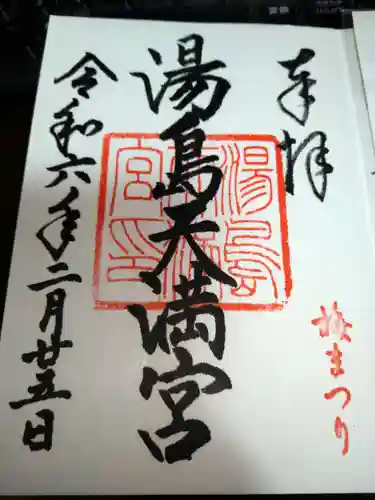 奉拝
梅まつり
湯島天満宮
湯島天満宮印
令和六年二月廿五日
変換